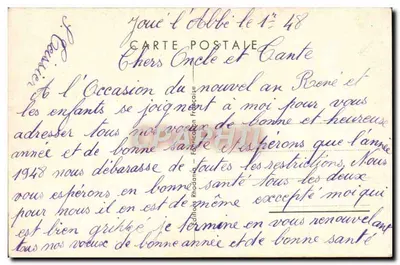 Joué l'Abbé le 1er 48
CARTE POSTALE
Chers Oncle et Tante
A l'Occasion du nouvel an René et
les enfants se joignent à moi pour vous
adresser tous nos vœux de bonne et heureuse
année et de bonne santé espérons que l'année
1948 nous débarasse de toutes les restrictions, Nous
vous espérons en bonne santé tous les deux
pour nous il en est de même excepté moi qui
est bien grippé je termine en vous renouvelant
tous nos voeux de bonne année et de bonne santé